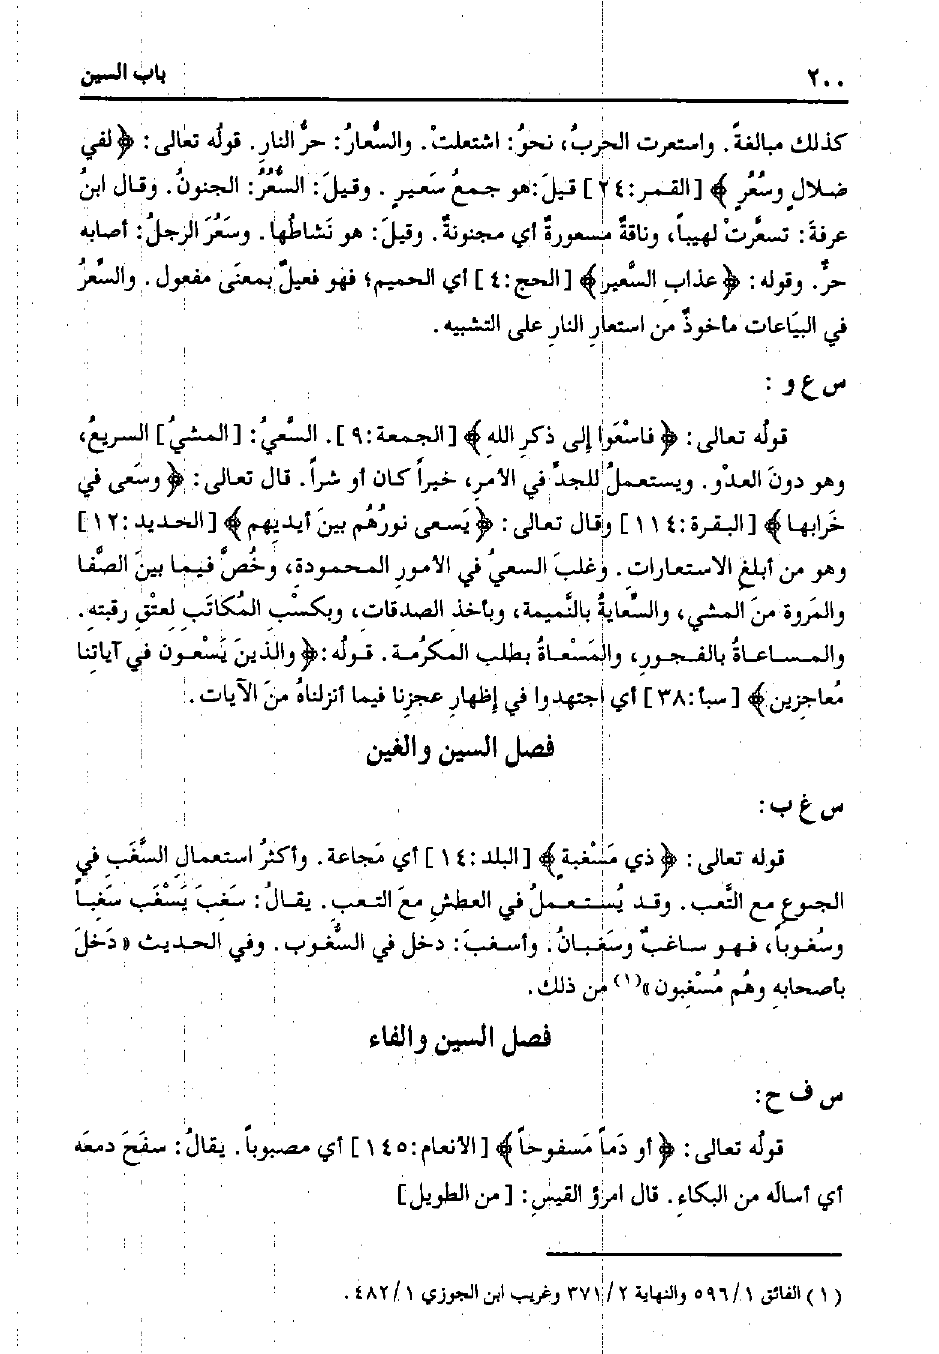 ٢٠٠ باب السين
كذلك مبالغةً. واستعرت الحربُ، نحوُ: اشتعلتْ. والسُّعارُ: حرُّ النارِ. قولُه تعالى: ﴿لفي
ضلالٍ وسُعُرٍ﴾ [القمر:٢٤] قيلَ:هو جمعُ سَعيرٍ. وقيلَ: السُّعُرُ: الجنونُ. وقال ابنُ
عرفةَ: تسعَّرتْ لهيباً، وناقةٌ مسعورةٌ أي مجنونةٌ. وقيلَ: هو نَشاطُها. وسَعُرَ الرجلُ: أصابه
حرٌّ. وقوله: ﴿عذاب السَّعير﴾ [الحج:٤] أي الحميم؛ فهو فعيلٌ بمعنَى مفعول. والسَّعرُ
في البيَاعات مأخوذٌ من استعارِ النارِ على التشبيه.
س ع و :
قولُه تعالى: ﴿فاسْعَوا إلى ذكرِ الله﴾ [الجمعة:٩]. السَّعيُ: [المشيُ] السريعُ،
وهو دونَ العدْوِ. ويستعملُ للجدِّ في الأمرِ، خيراً كان أو شراً. قال تعالى: ﴿وسَعى في
خَرابها﴾ [البقرة:١١٤] وقال تعالى: ﴿يَسعى نورُهُم بينَ أيديهم﴾ [الحديد:١٢]
وهو من أبلغِ الاستعارات. وغلبَ السعيُ في الأمورِ المحمودةِ، وخُصَّ فيما بينَ الصَّفا
والمَروة منَ المشي، والسِّعايةُ بالنَّميمة، وبأخذ الصدقات، وبكسْبِ المُكاتَبِ لعتْقِ رقبته.
والمساعاةُ بالفجورِ، والمَسْعاةُ بطلب المكرُمة. قولُه:﴿والذينَ يَسْعون في آياتنا
مُعاجزِين﴾ [سبأ:٣٨] أي اجتهدوا في إظهارِ عجزِنا فيما أنزلناهُ منَ الآيات.
فصل السين والغين
س غ ب:
قوله تعالى: ﴿ذي مَسْغبةٍ﴾ [البلد:١٤] أي مَجاعة. وأكثرُ استعمالِ السَّغَبِ في
الجوعِ مع التَّعب. وقد يُستعملُ في العطشِ معَ التعبِ. يقالُ: سَغِبَ يَسْغَب سَغَباً
وسُغوباً، فهو ساغبٌ وسَغبانُ. وأسغبَ: دخل في السُّغوب. وفي الحديث «دَخلَ
بأصحابهِ وهُم مُسْغِبون»(١) من ذلك.
فصل السين والفاء
س ف ح:
قولُه تعالى: ﴿أو دَماً مَسفوحاً﴾ [الأنعام:١٤٥] أي مصبوباً. يقالُ: سفَحَ دمعَه
أي أسالَه من البكاءِ. قال امرؤ القيسِ: [من الطويل]
(١) الفائق ٥٩٦/١ والنهاية ٣٧١/٢ وغريب ابن الجوزي ٤٨٢/١.